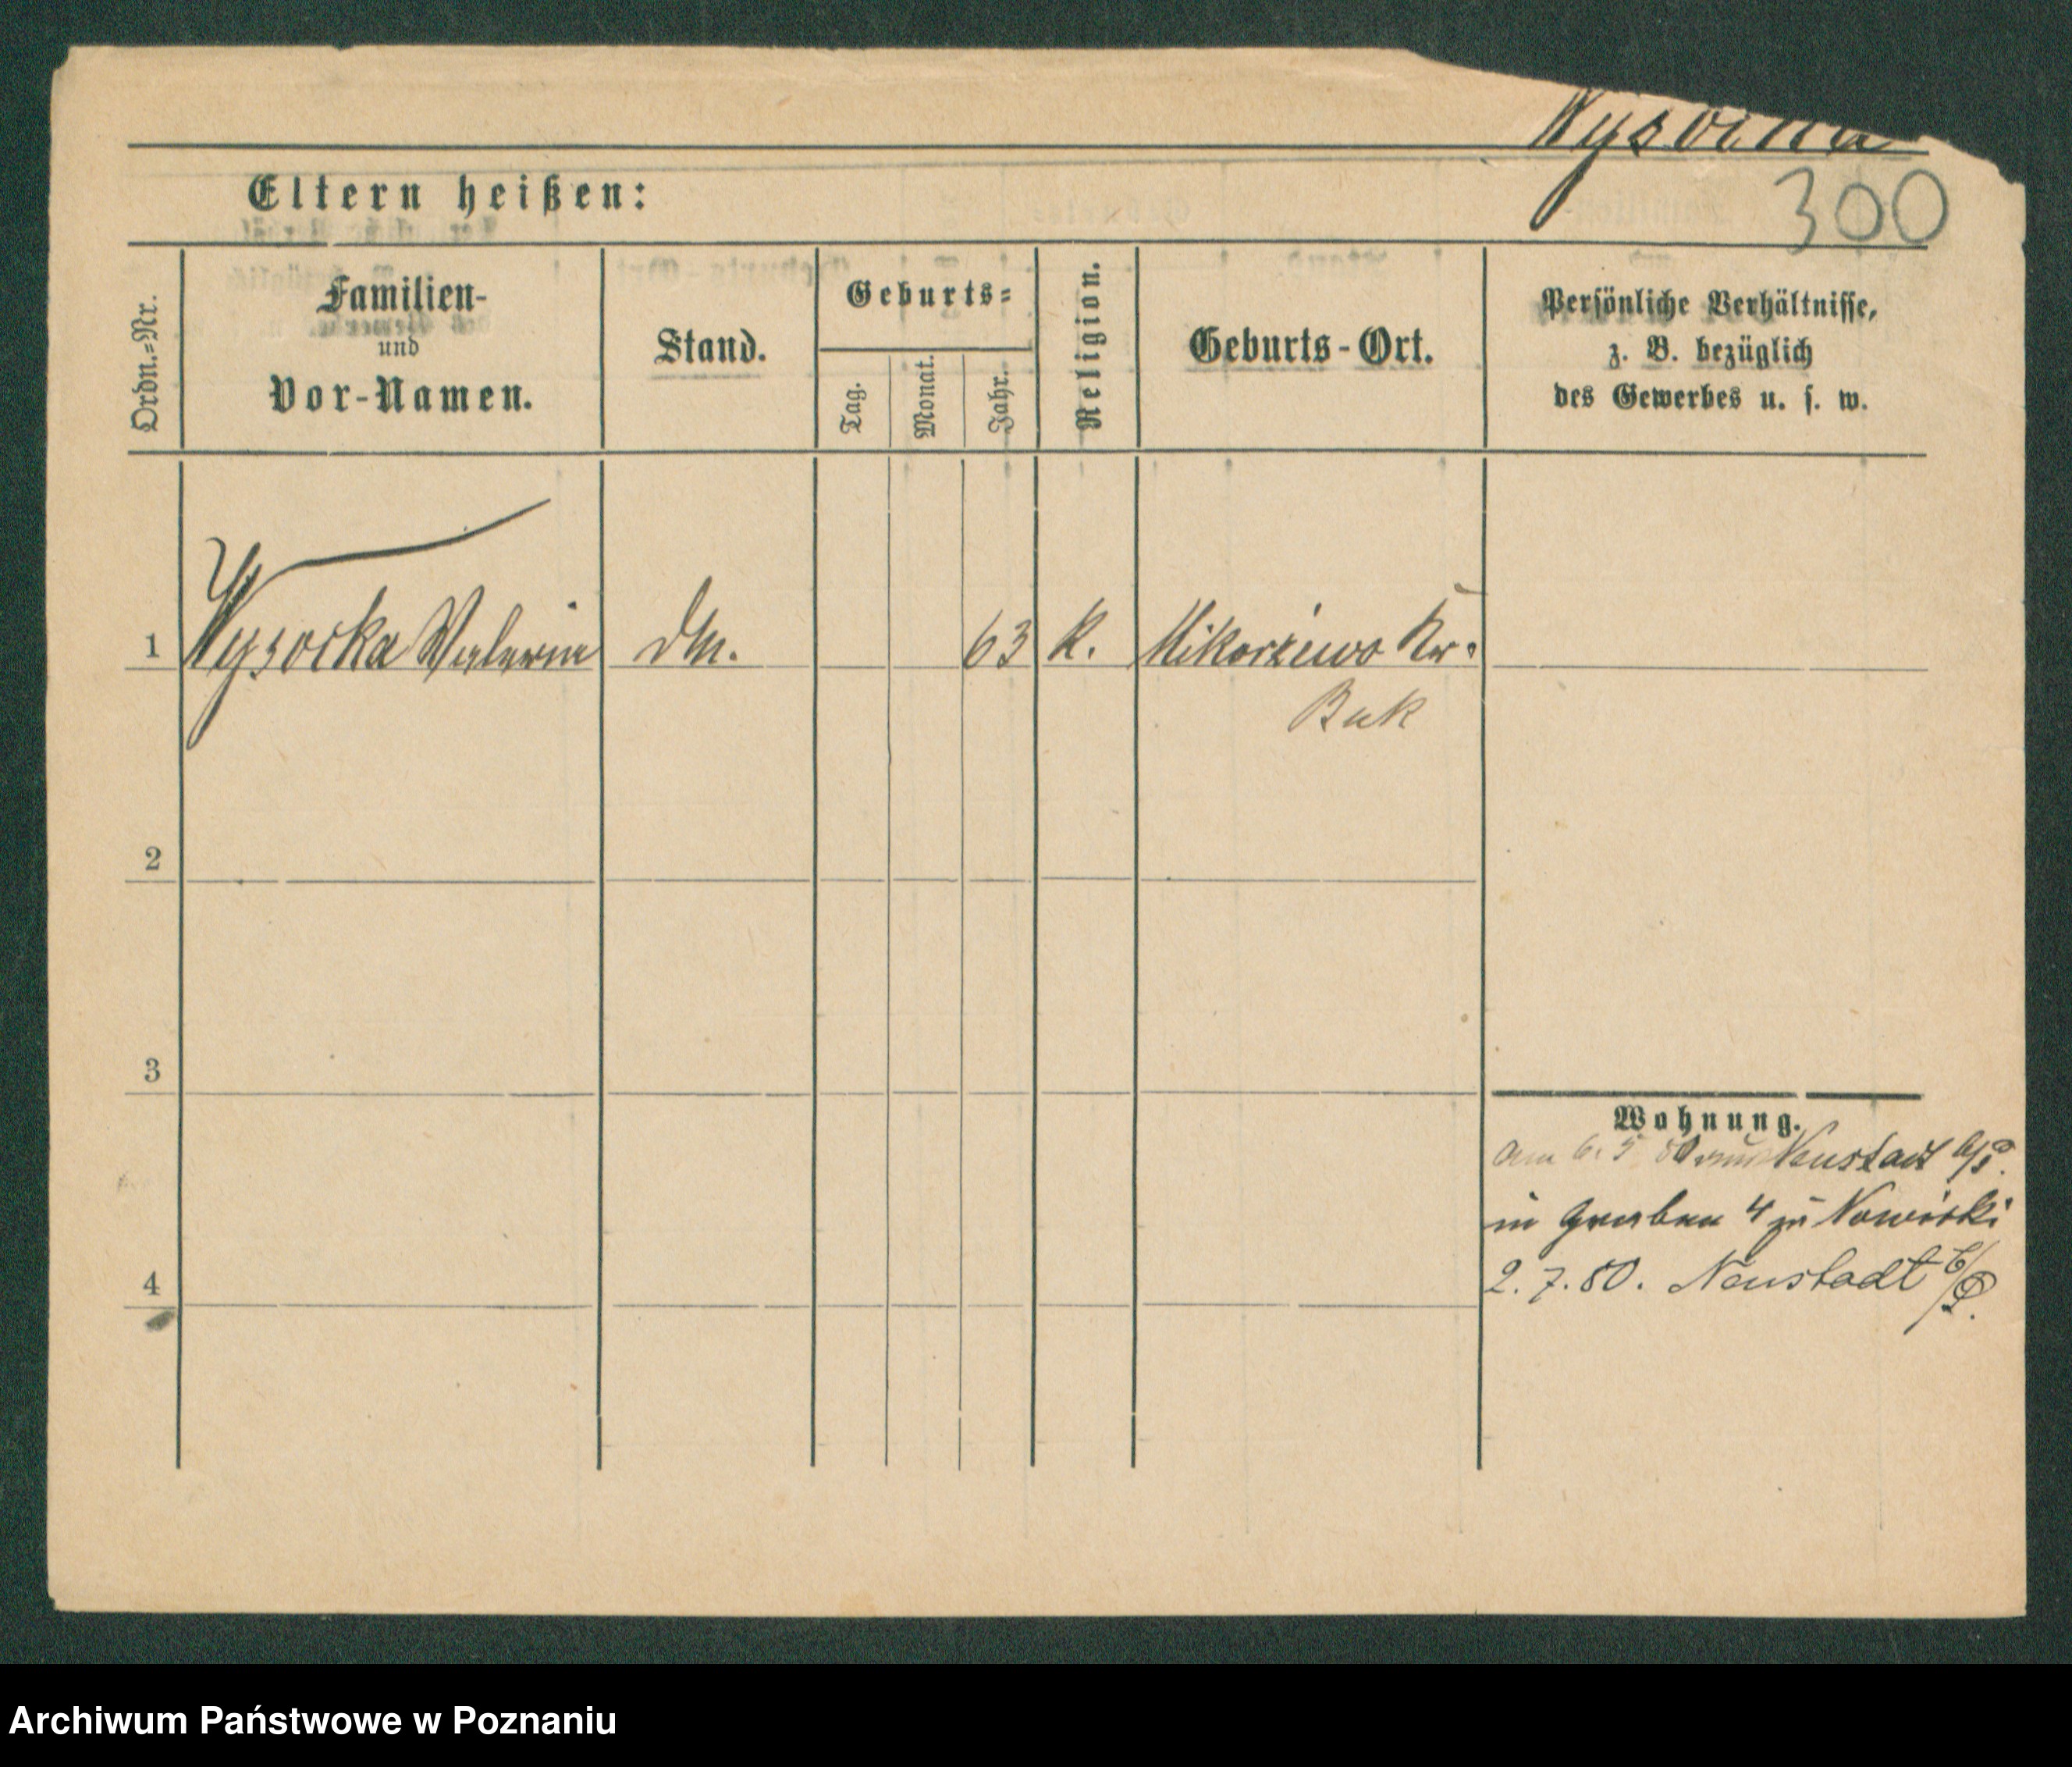 Wysocka
300
Eltern heißen:
Ordn.=Nr.
Familien-
und
Vor-Namen.
Stand.
Geburts=
Tag.
Monat.
Jahr.
Religion.
Geburts-Ort.
Persönliche Verhältnisse,
z. B. bezüglich
des Gewerbes u. s. w.
1 Wysocka Valeria DM. 63 K. Mikorzewo Kr.
Buk
2
3
4
Wohnung.
am 6. 5 80 aus Neustadt b/P.
in Graben 4 zu Nowicki
2. 7. 80. Neustadt b/P.
Archiwum Państwowe w Poznaniu